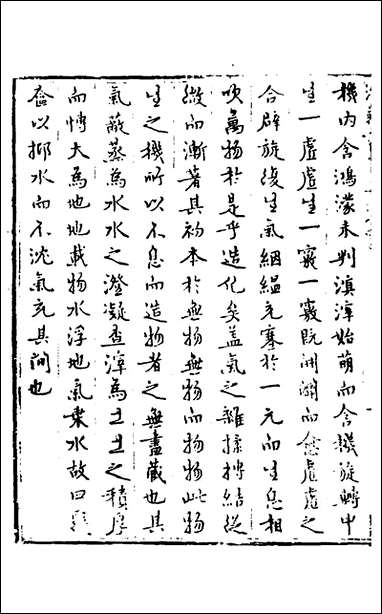 機内含鴻濛未判滇涬始萌而含譏旋轉中
生一虛虛生一竅一竅既開闢而愈虛虛之
合辟旋復生氣絪縕充塞於一元而生息相
吹萬物於是乎造化矣蓋氣之雜揉摶結從
微而漸著其初本於無物無物而物物此物
生之機所以不息而造物者之無盡藏也其
氣蔽蒸為水水之澄凝查滓為土土之積厚
而博大為地地載物水浮地氣乗水故曰
奮以抑水而不沈氣充其间也